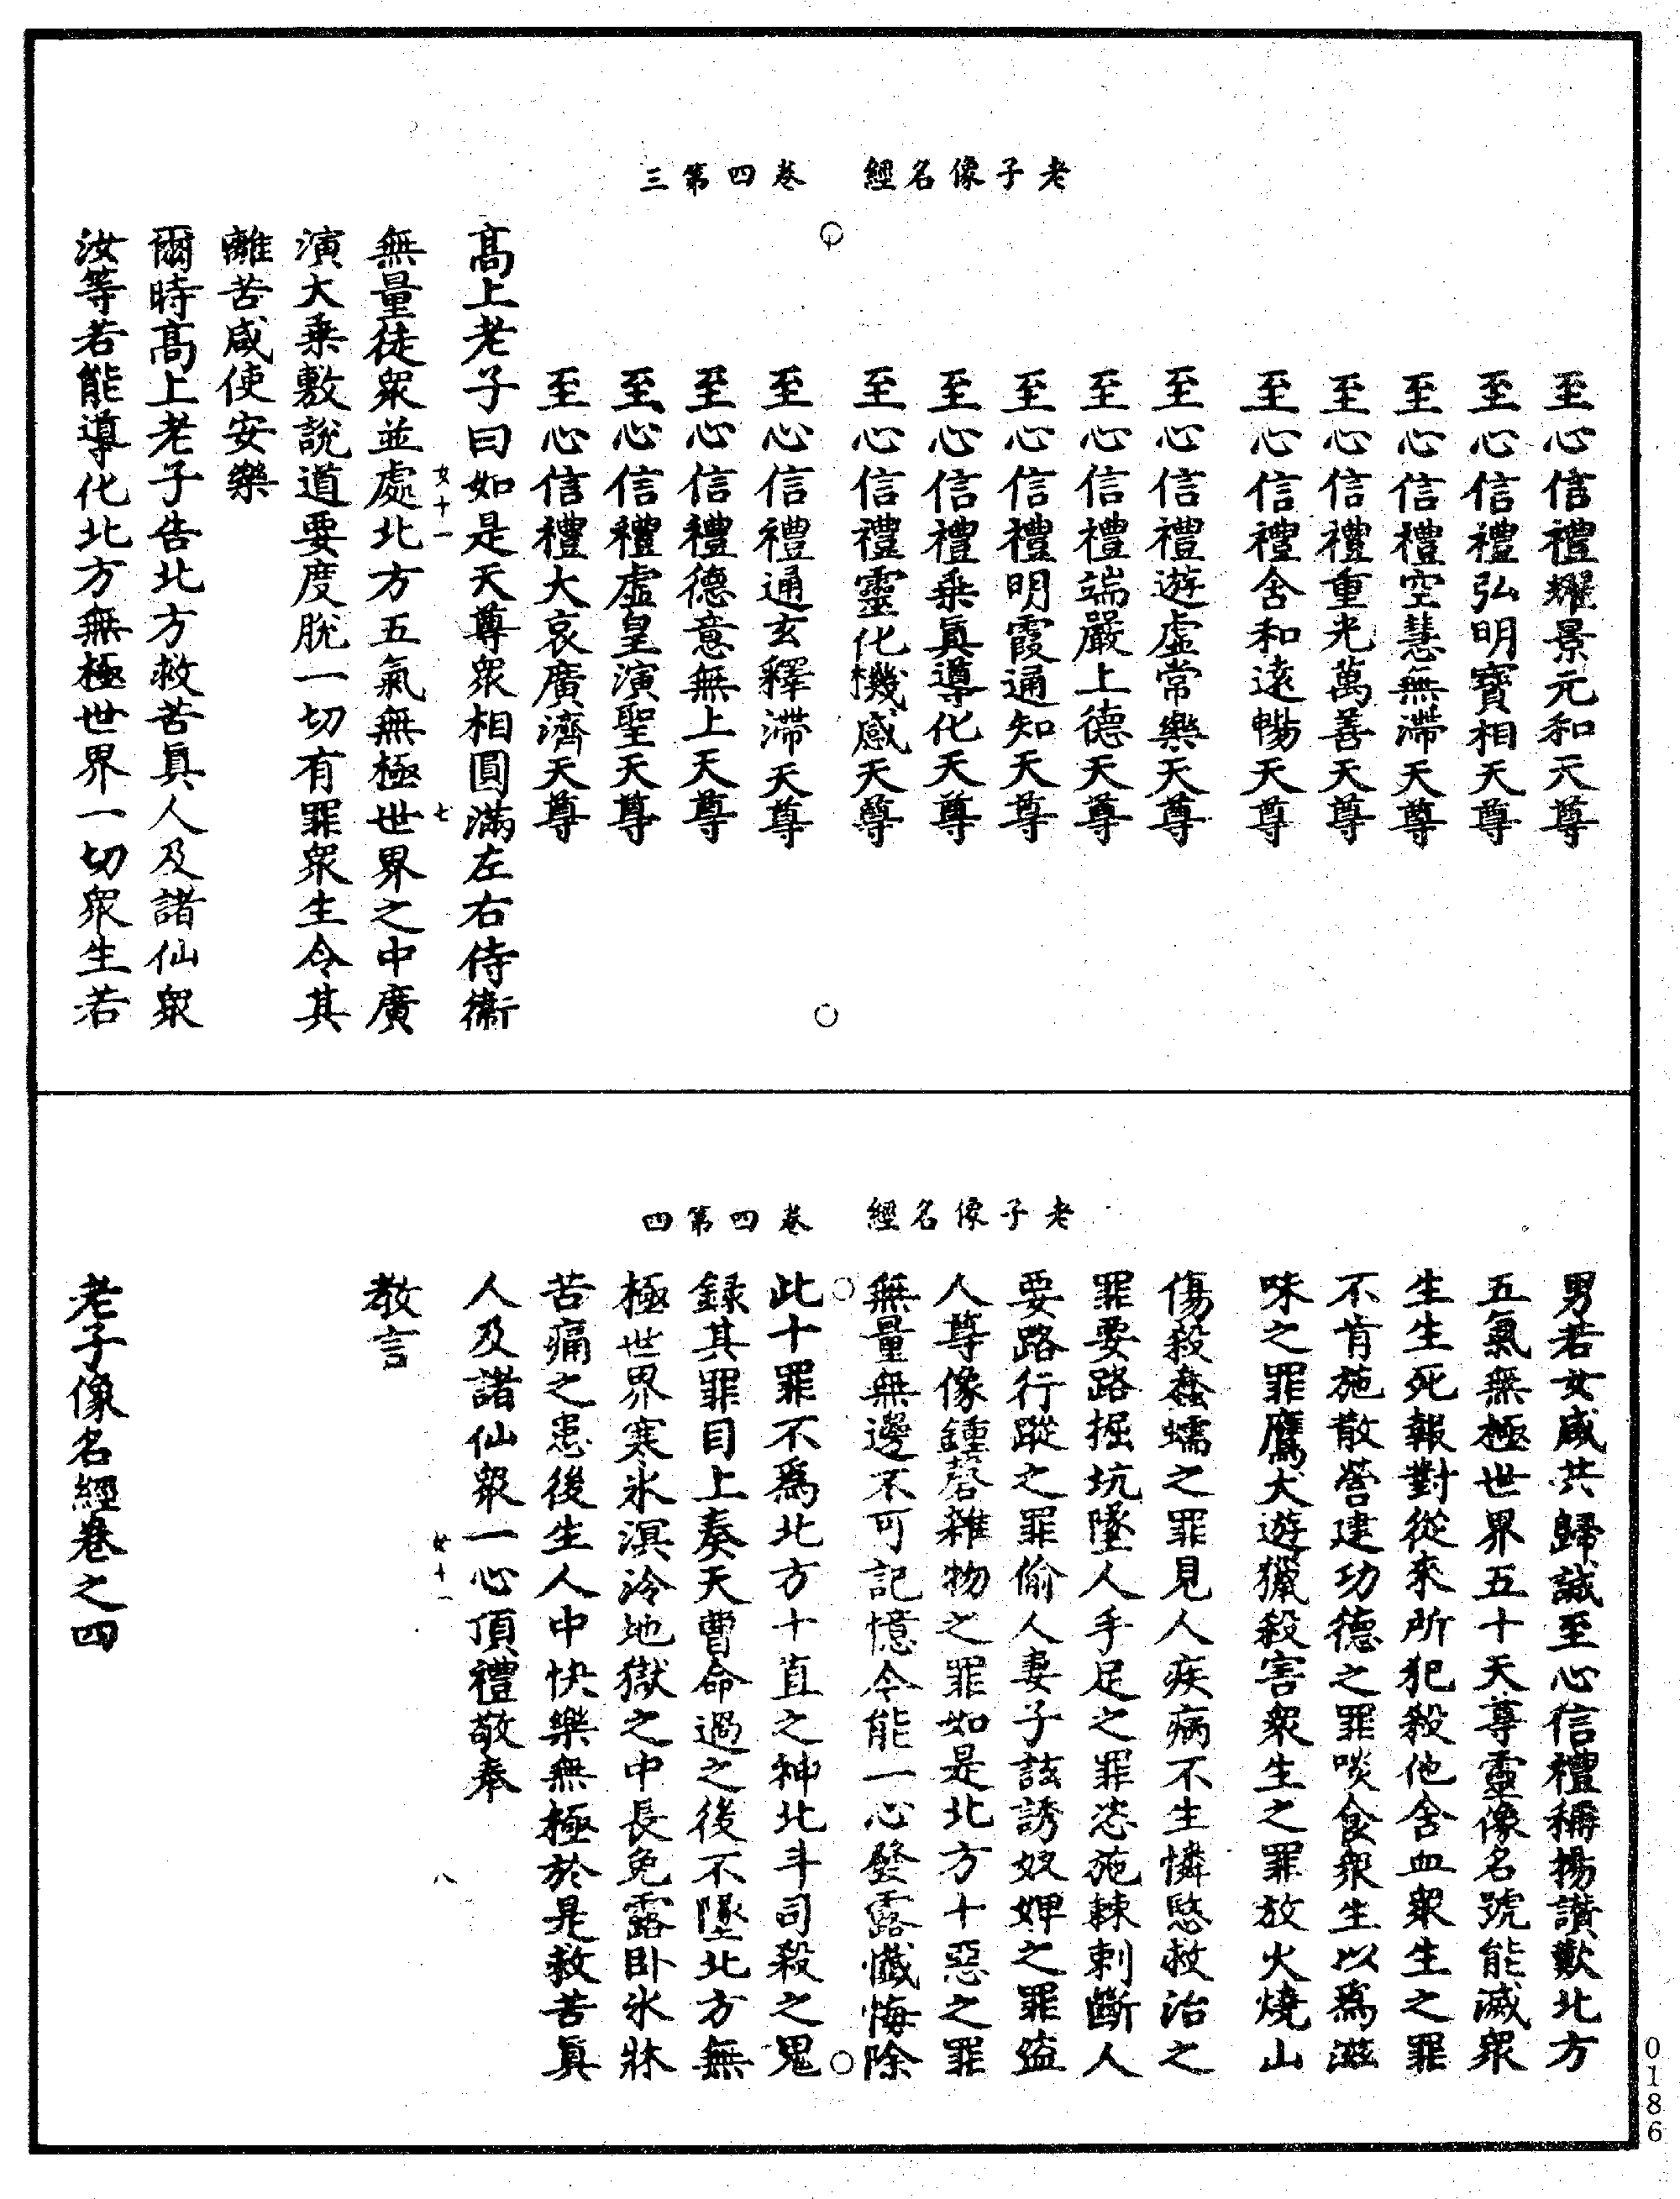 老子像名經　卷四第三
至心信禮耀景元和天尊
至心信禮弘明寶相天尊
至心信禮空慧無滯天尊
至心信禮重光萬善天尊
至心信禮含和遠暢天尊
至心信禮遊虛常樂天尊
至心信禮端嚴上德天尊
至心信禮明霞通知天尊
至心信禮乘眞導化天尊
至心信禮靈化機感天尊
至心信禮通玄釋滯天尊
至心信禮德意無上天尊
至心信禮虛皇演聖天尊
至心信禮大哀廣濟天尊
高上老子曰如是天尊衆相圓滿左右侍衞
女十一　七
無量徒衆並處北方五氣無極世界之中廣
演大乘敷說道要度脫一切有罪衆生令其
離苦咸使安樂
爾時高上老子告北方救苦眞人及諸仙衆
汝等若能導化北方無極世界一切衆生若
老子像名經　卷四第四
男若女咸共歸誠至心信禮稱揚讚歎北方
五氣無極世界五十天尊靈像名號能滅衆
生生死報對從來所犯殺他含血衆生之罪
不肯施散營建功德之罪啖食衆生以爲滋
味之罪鷹犬遊獵殺害衆生之罪放火燒山
傷殺蠢蠕之罪見人疾病不生憐愍救治之
罪要路掘坑墜人手足之罪恣施棘刺斷人
要路行蹤之罪偷人妻子詃誘奴婢之罪盜
人尊像鍾磬雜物之罪如是北方十惡之罪
無量無邊不可記憶令能一心發露懺悔除
此十罪不爲北方十直之神北斗司殺之鬼
錄其罪目上奏天曹命過之後不墜北方無
極世界寒氷溟泠地獄之中長免露臥氷牀
苦痛之患後生人中快樂無極於是救苦眞
人及諸仙衆一心頂禮敬奉
女十一　八
教言
老子像名經卷之四
0186